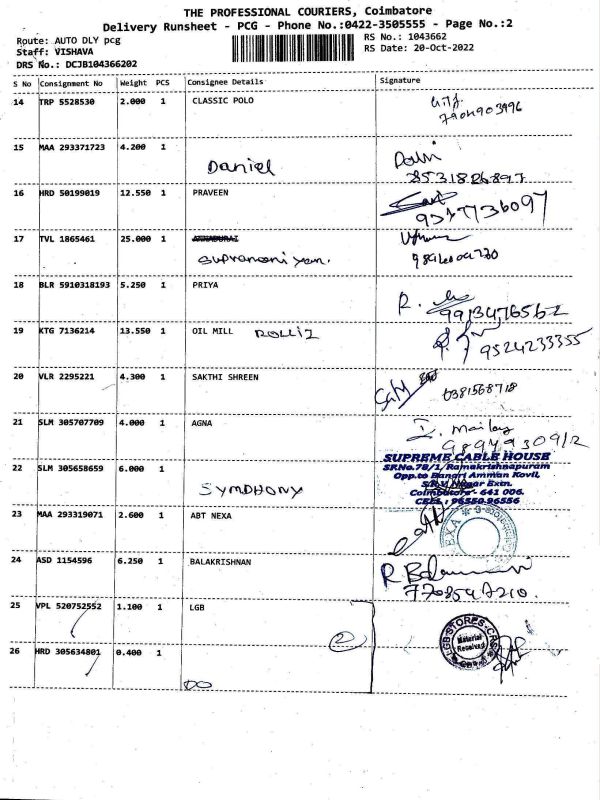 THE PROFESSIONAL COURIERS, Coimbatore
Delivery Runsheet - PCG - Phone No.:0422-3505555 - Page No.:2
Route: AUTO DLY pcg
Staff: VISHAVA
DRS No.: DCJB104366202
RS No.: 1043662
RS Date: 20-Oct-2022
S No Consignment No Weight PCS Consignee Details Signature
14 TRP 5528530 2.000 1 CLASSIC POLO
7904903996
15 MAA 293371723 4.200 1
Daniel
8531826897
16 HRD 50199019 12.550 1 PRAVEEN
17 TVL 1865461 25.000 1
18 BLR 5910318193 5.250 1 PRIYA
R.
9913476562
19 KTG 7136214 13.550 1 OIL MILL
9524233355
20 VLR 2295221 4.300 1 SAKTHI SHREEN
6381568718
21 SLM 305707709 4.000 1 AGNA
SUPREME CABLE HOUSE
SRNo.78/1, Ramakrishnapuram
Opp.to Bangri Amman Kovil,
Extn.
Coimbatore - 641 006.
CELL : 96550-96556
22 SLM 305658659 6.000 1
SYMDHONY
23 MAA 293319071 2.600 1 ABT NEXA
24 ASD 1154596 6.250 1 BALAKRISHNAN
25 VPL 520752552 1.100 1 LGB
2
LGB STORES
Material
Received
26 HRD 305634801 0.400 1
DO